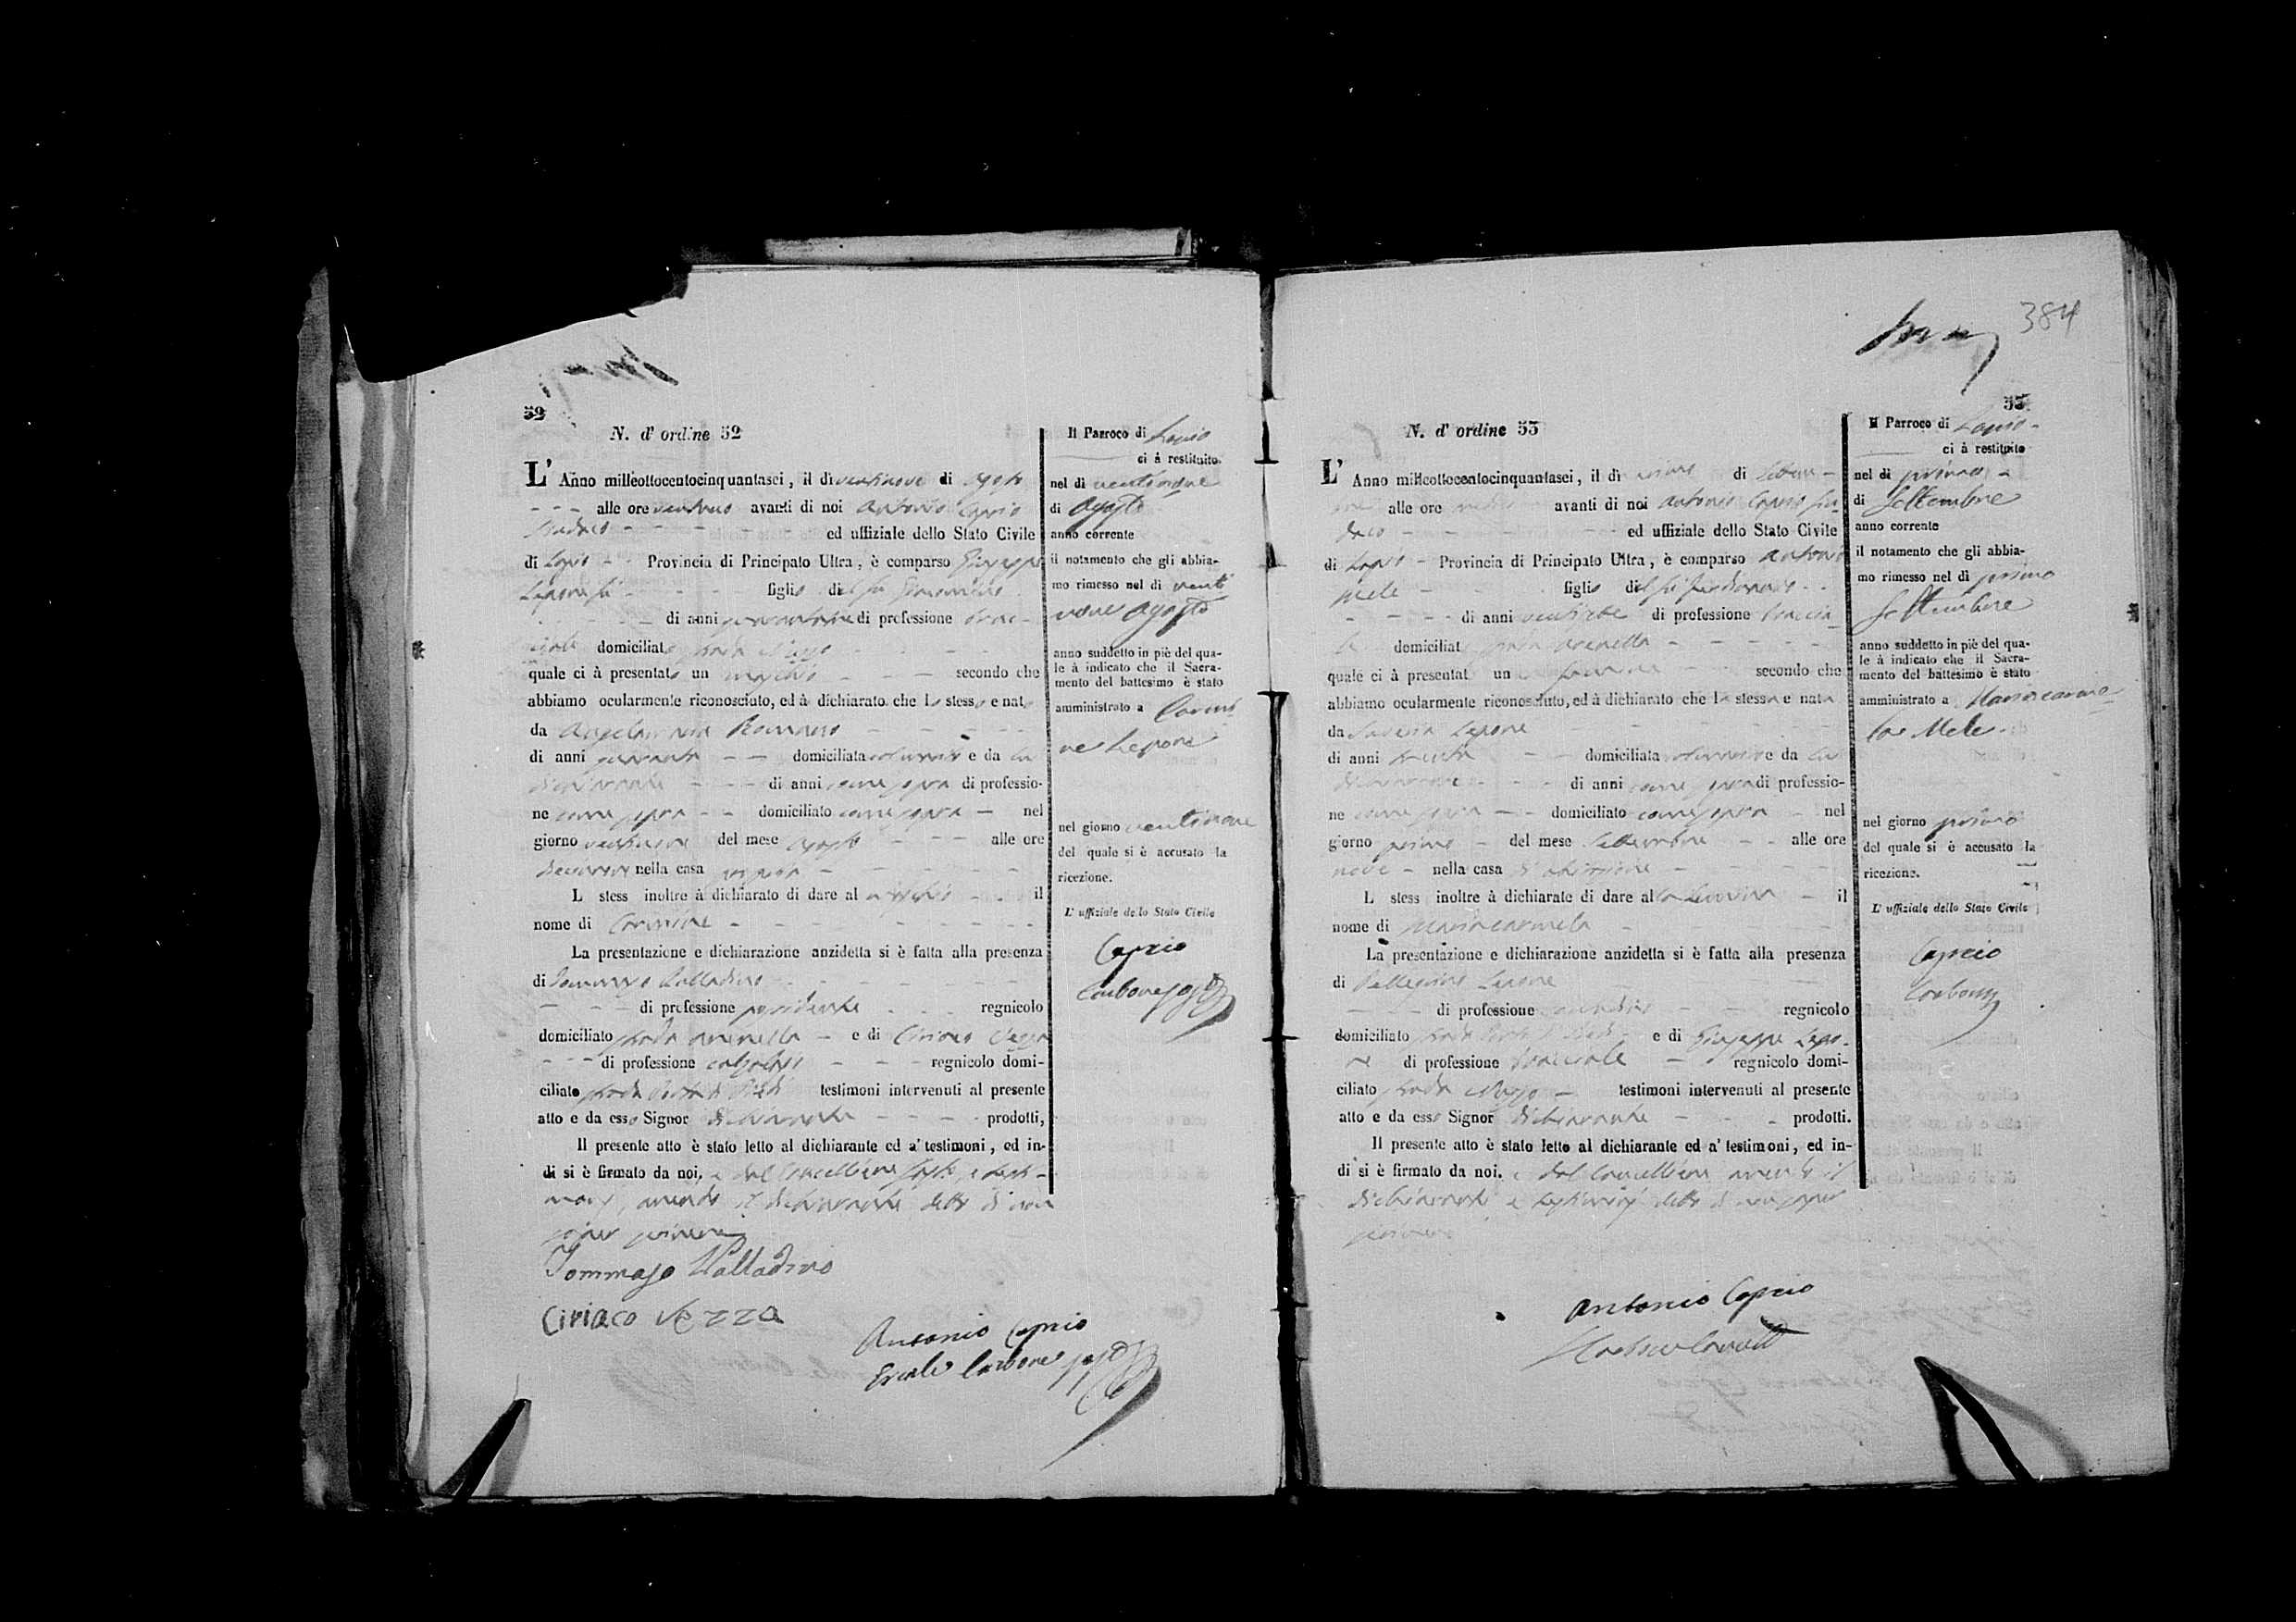 52
N. d' ordine 52
L' Anno milleottocentocinquantasei, il dì ventinove di Agosto
alle ore avanti di noi Antonio Caprio
Sindaco ed uffiziale dello Stato Civile
di Lapio Provincia di Principato Ultra, è comparso Giuseppe
figlio del fu
di anni di professione brac-
ciale domiciliato strada
quale ci à presentato un maschio secondo che
abbiamo ocularmente riconosciuto, ed à dichiarato che lo stesso e nato
da Angelamaria Romano
di anni quaranta domiciliata e da lui
dichiarante di anni come sopra di professio-
ne come sopra domiciliato come sopra nel
giorno ventinove del mese Agosto alle ore
nella casa propria
L stess inoltre à dichiarato di dare al maschio il
nome di Carmine
La presentazione e dichiarazione anzidetta si è fatta alla presenza
di Tommaso Palladino
di professione possidente regnicolo
domiciliato strada Arenella e di Ciriaco Vezza
di professione calzolaio regnicolo domi-
ciliato strada testimoni intervenuti al presente
atto e da esso Signor dichiarante prodotti,
Il presente atto è stato letto al dichiarante ed a' testimoni, ed in-
di si è firmato da noi, e dal Cancelliere e testi-
monj, avendo il dichiarante detto di non
saper scrivere
Tommaso Palladino
Ciriaco Vezza
Antonio Caprio
Ercole Carbone
Il Parroco di Lapio
ci à restituito
nel dì ventinove
di Agosto
anno corrente
il notamento che gli abbia-
mo rimesso nel dì venti
nove Agosto
anno suddetto in piè del qua-
le à indicato che il Sacra-
mento del battesimo è stato
amministrato a Carmi-
ne Lepore
nel giorno ventinove
del quale si è accusato la
ricezione.
L' uffiziale dello Stato Civile
Caprio
Carbone
384
53
N. d' ordine 53
L' Anno milleottocentocinquantasei, il dì primo di Settem-
bre alle ore avanti di noi Antonio Caprio Sin-
daco ed uffiziale dello Stato Civile
di Lapio Provincia di Principato Ultra, è comparso Antonio
Mele figlio del fu Ferdinando
di anni di professione braccia-
le domiciliat strada Arenella
quale ci à presentat una femmina secondo che
abbiamo ocularmente riconosciuto, ed à dichiarato che la stessa e nata
da Lepore
di anni trenta domiciliata e da lui
dichiarante di anni come sopra di professio-
ne come sopra domiciliato come sopra nel
giorno primo del mese Settembre alle ore
nove nella casa di abitazione
L stess inoltre à dichiarato di dare alla bambina il
nome di Mariacarmela
La presentazione e dichiarazione anzidetta si è fatta alla presenza
di Pellegrino Lepore
di professione regnicolo
domiciliato strada e di Giuseppe Lepo-
re di professione bracciale regnicolo domi-
ciliato strada testimoni intervenuti al presente
atto e da esso Signor dichiarante prodotti.
Il presente atto è stato letto al dichiarante ed a' testimoni, ed in-
di si è firmato da noi, e dal Cancelliere avendo il
dichiarante e testimonj detto di non saper
scrivere
Antonio Caprio
Il Parroco di Lapio
ci à restituito
nel dì primo
di Settembre
anno corrente
il notamento che gli abbia-
mo rimesso nel dì primo
Settembre
anno suddetto in piè del qua-
le à indicato che il Sacra-
mento del battesimo è stato
amministrato a Mariacarme-
la Mele
nel giorno primo
del quale si è accusato la
ricezione.
L' uffiziale dello Stato Civile
Caprio
Carbone